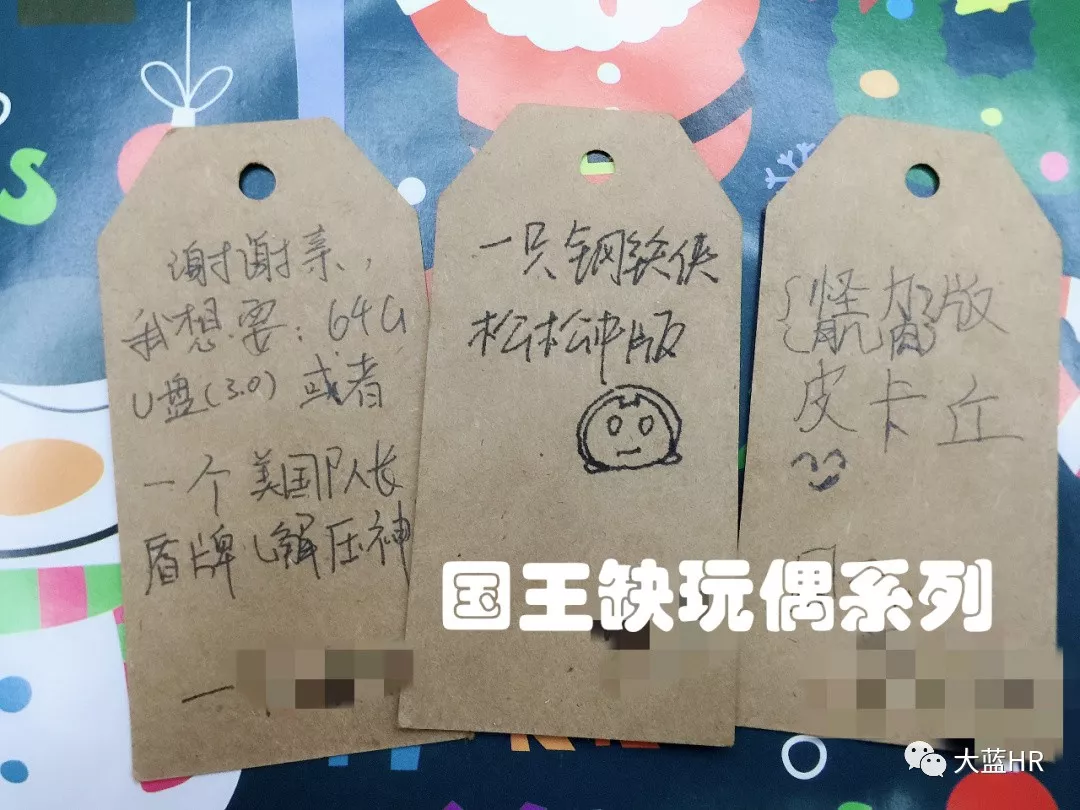 谢谢亲,
我想要:64G
U盘(3.0)或者
一个美国队长
盾牌(解压神
一只钢铁侠
松松钟版
怪力版
肌肉
皮卡丘
国王缺玩偶系列
大蓝HR
S